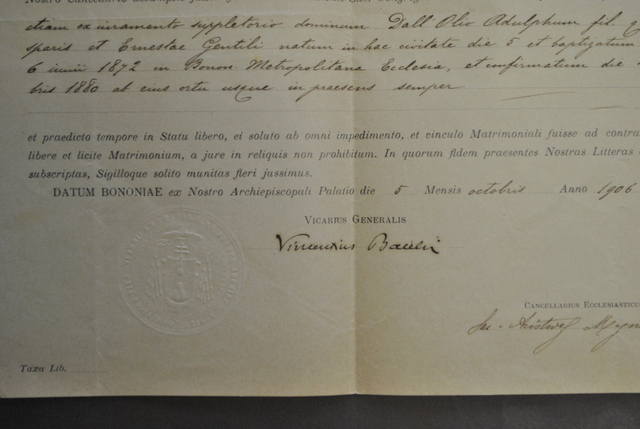 etiam ex iuramento suppletorio dominum Dall Olio Adulphum fil.
sparis et Ernestae Gentili natum in hac civitate die 5 et baptizatum
6 iunii 1872 in Bonon Metropolitana Ecclesia, et confirmatum die
bris 1880 ab eius ortu usque in praesens semper
et praedicto tempore in Statu libero, ei soluto ab omni impedimento, et vinculo Matrimoniali fuisse ad contra
libere et licite Matrimonium, a jure in reliquis non prohibitum. In quorum fidem praesentes Nostras Litteras
subscriptas, Sigilloque solito munitas fieri jussimus.
DATUM BONONIAE ex Nostro Archiepiscopali Palatio die 5 Mensis octobris Anno 1906
VICARIUS GENERALIS
Vincentius Bacchi
CANCELLARIUS ECCLESIASTICU
Taxa Lib.